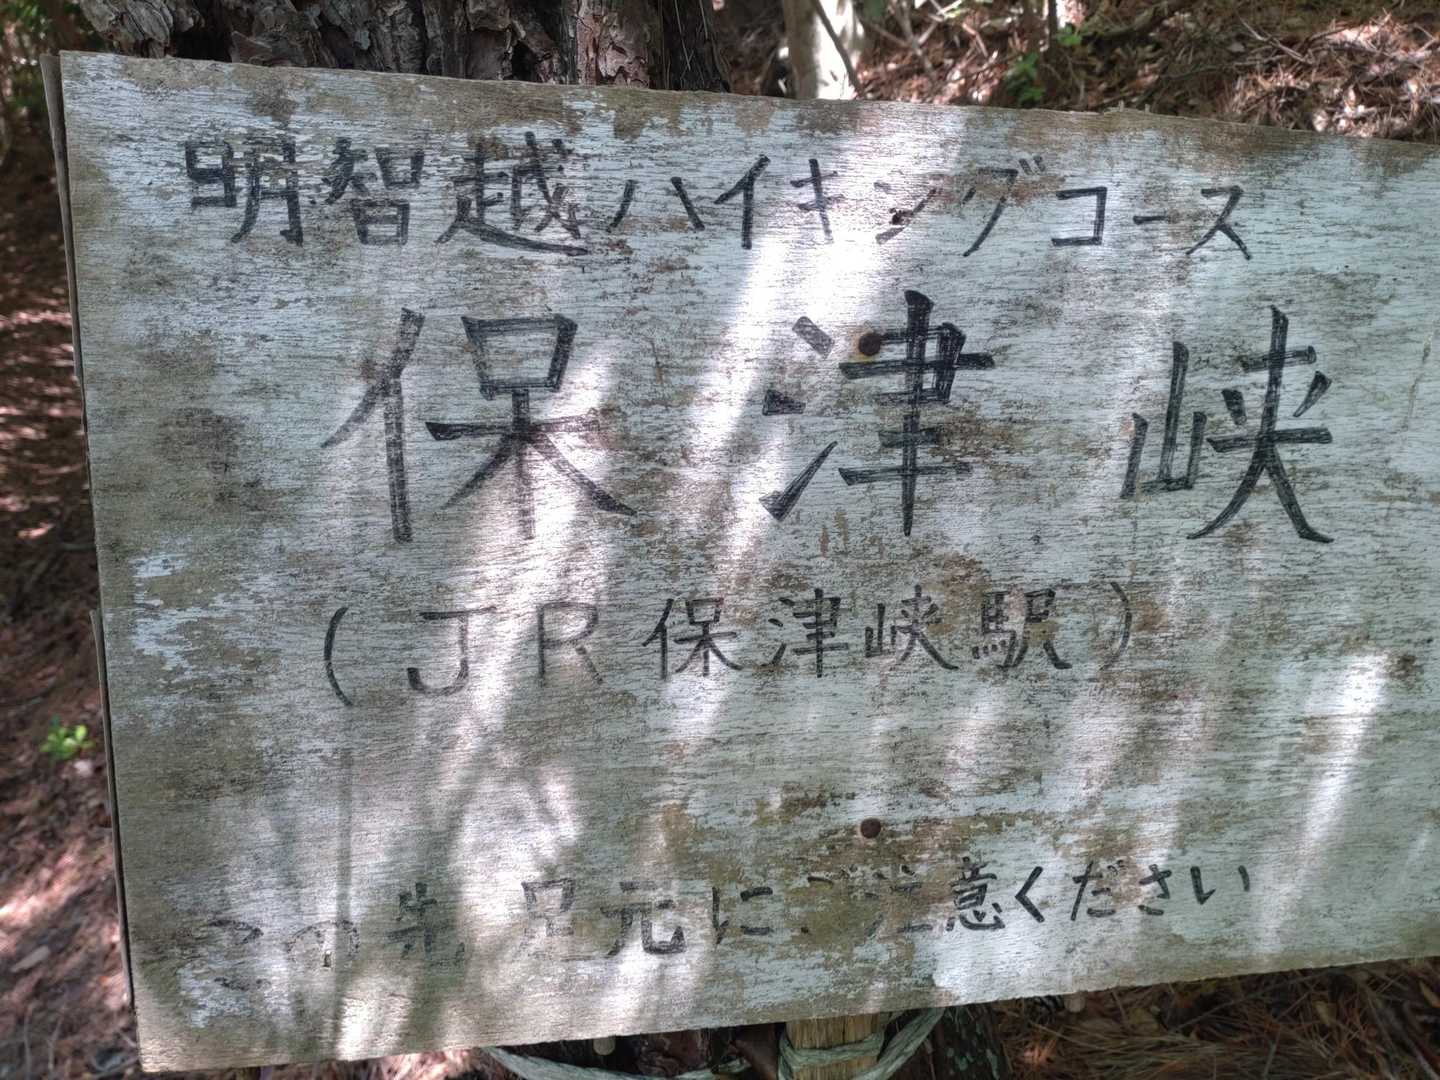 明智越ハイキングコース
保津峡
(JR保津峡駅)
この先 足元にご注意ください